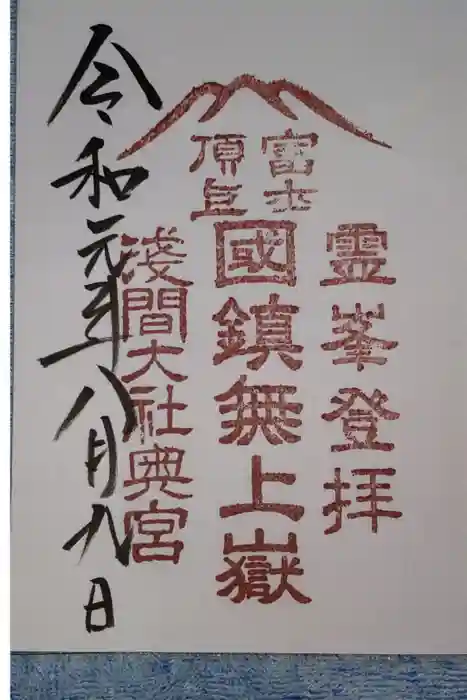 富士
頂上
霊峯登拝
國鎮無上嶽
浅間大社奥宮
令和元年八月九日